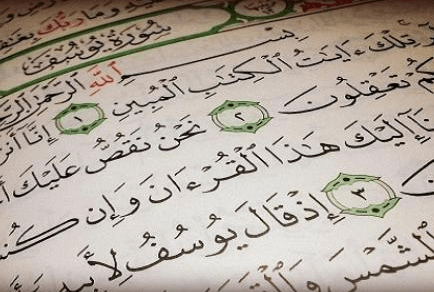 وَمَا رَبُّكَ
سُورَةُ يُوسُفَ
بِسْمِ ٱللَّهِ ٱلرَّحْمَٰنِ ٱلرَّ
تِلْكَ ءَايَٰتُ ٱلْكِتَٰبِ ٱلْمُبِينِ ١ إِنَّآ أَنز
كُمْ تَعْقِلُونَ ٢ نَحْنُ نَقُصُّ عَلَيْكَ أَ
نَآ إِلَيْكَ هَٰذَا ٱلْقُرْءَانَ وَإِن كُن
نَ ٣ إِذْ قَالَ يُوسُفُ لِأَبِيهِ
ٱلشَّمْسَ وَٱلْقَ